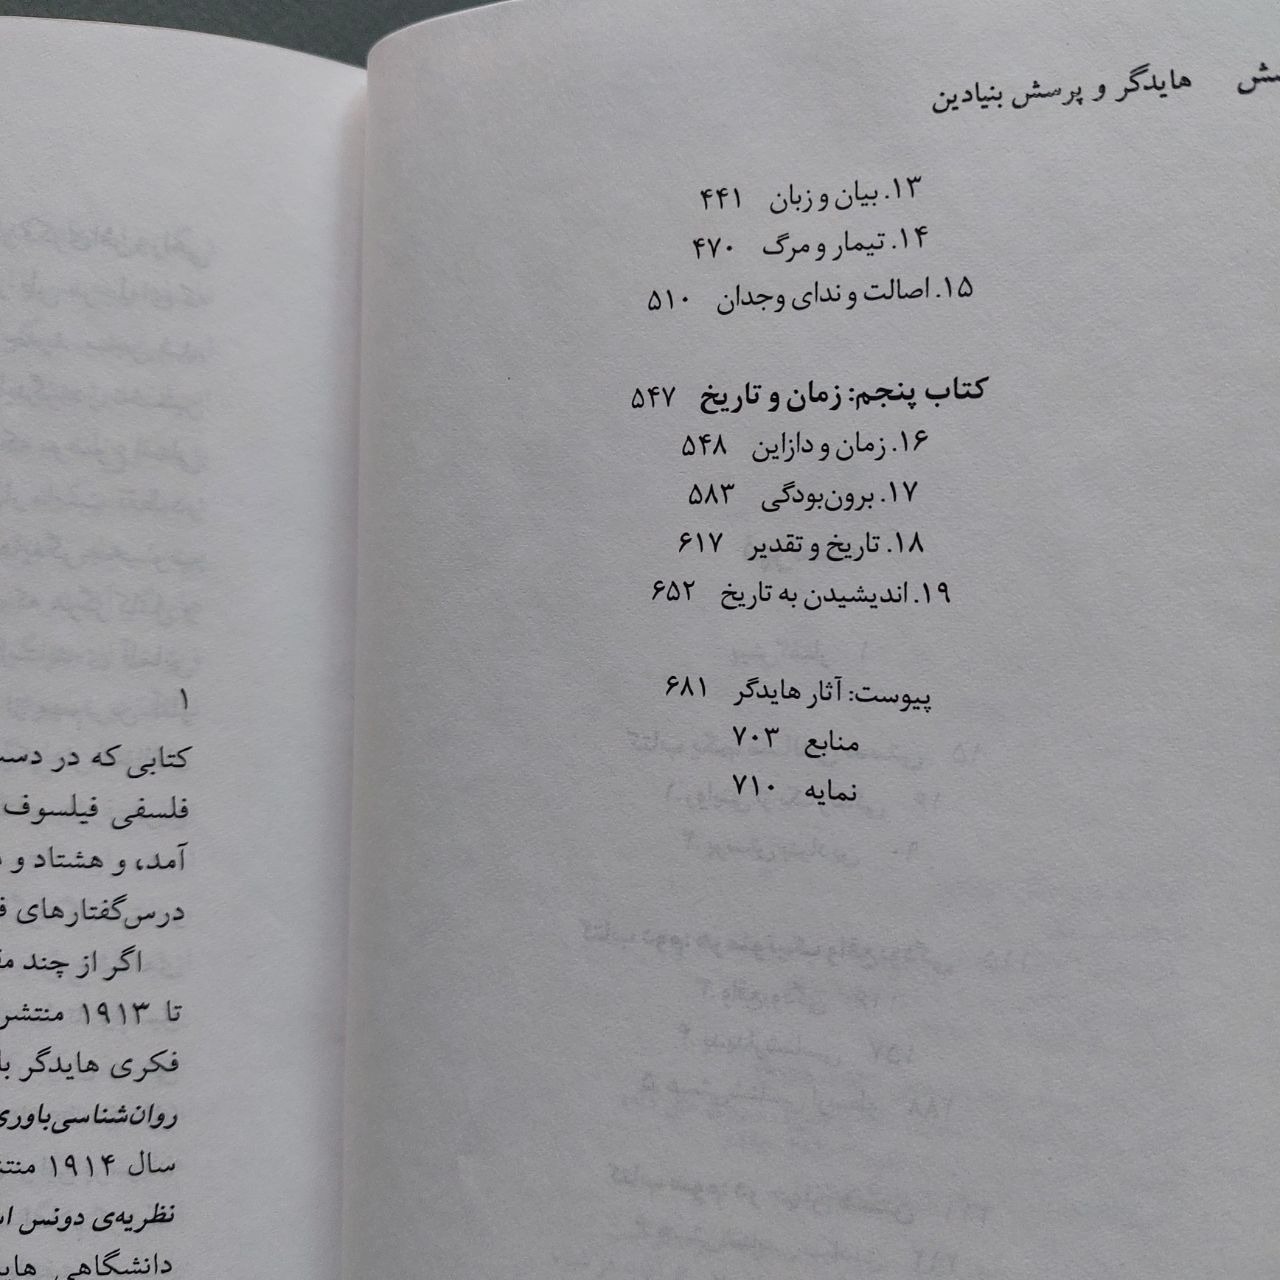 هایدگر و پرسش بنیادین
۱۳. بیان و زبان ۴۴۱
۱۴. تیمار و مرگ ۴۷۰
۱۵. اصالت و ندای وجدان ۵۱۰
کتاب پنجم: زمان و تاریخ ۵۴۷
۱۶. زمان و دازاین ۵۴۸
۱۷. برون‌بودگی ۵۸۳
۱۸. تاریخ و تقدیر ۶۱۷
۱۹. اندیشیدن به تاریخ ۶۵۲
پیوست: آثار هایدگر ۶۸۱
منابع ۷۰۳
نمایه ۷۱۰
۱
کتابی که در دست
فلسفی فیلسوف
آمد، و هشتاد و
درس‌گفتارهای
اگر از چند
تا ۱۹۱۳ منتشر
فکری هایدگر
روان‌شناسی‌باوری
سال ۱۹۱۴
نظریه‌ی دونس
دانشگاهی